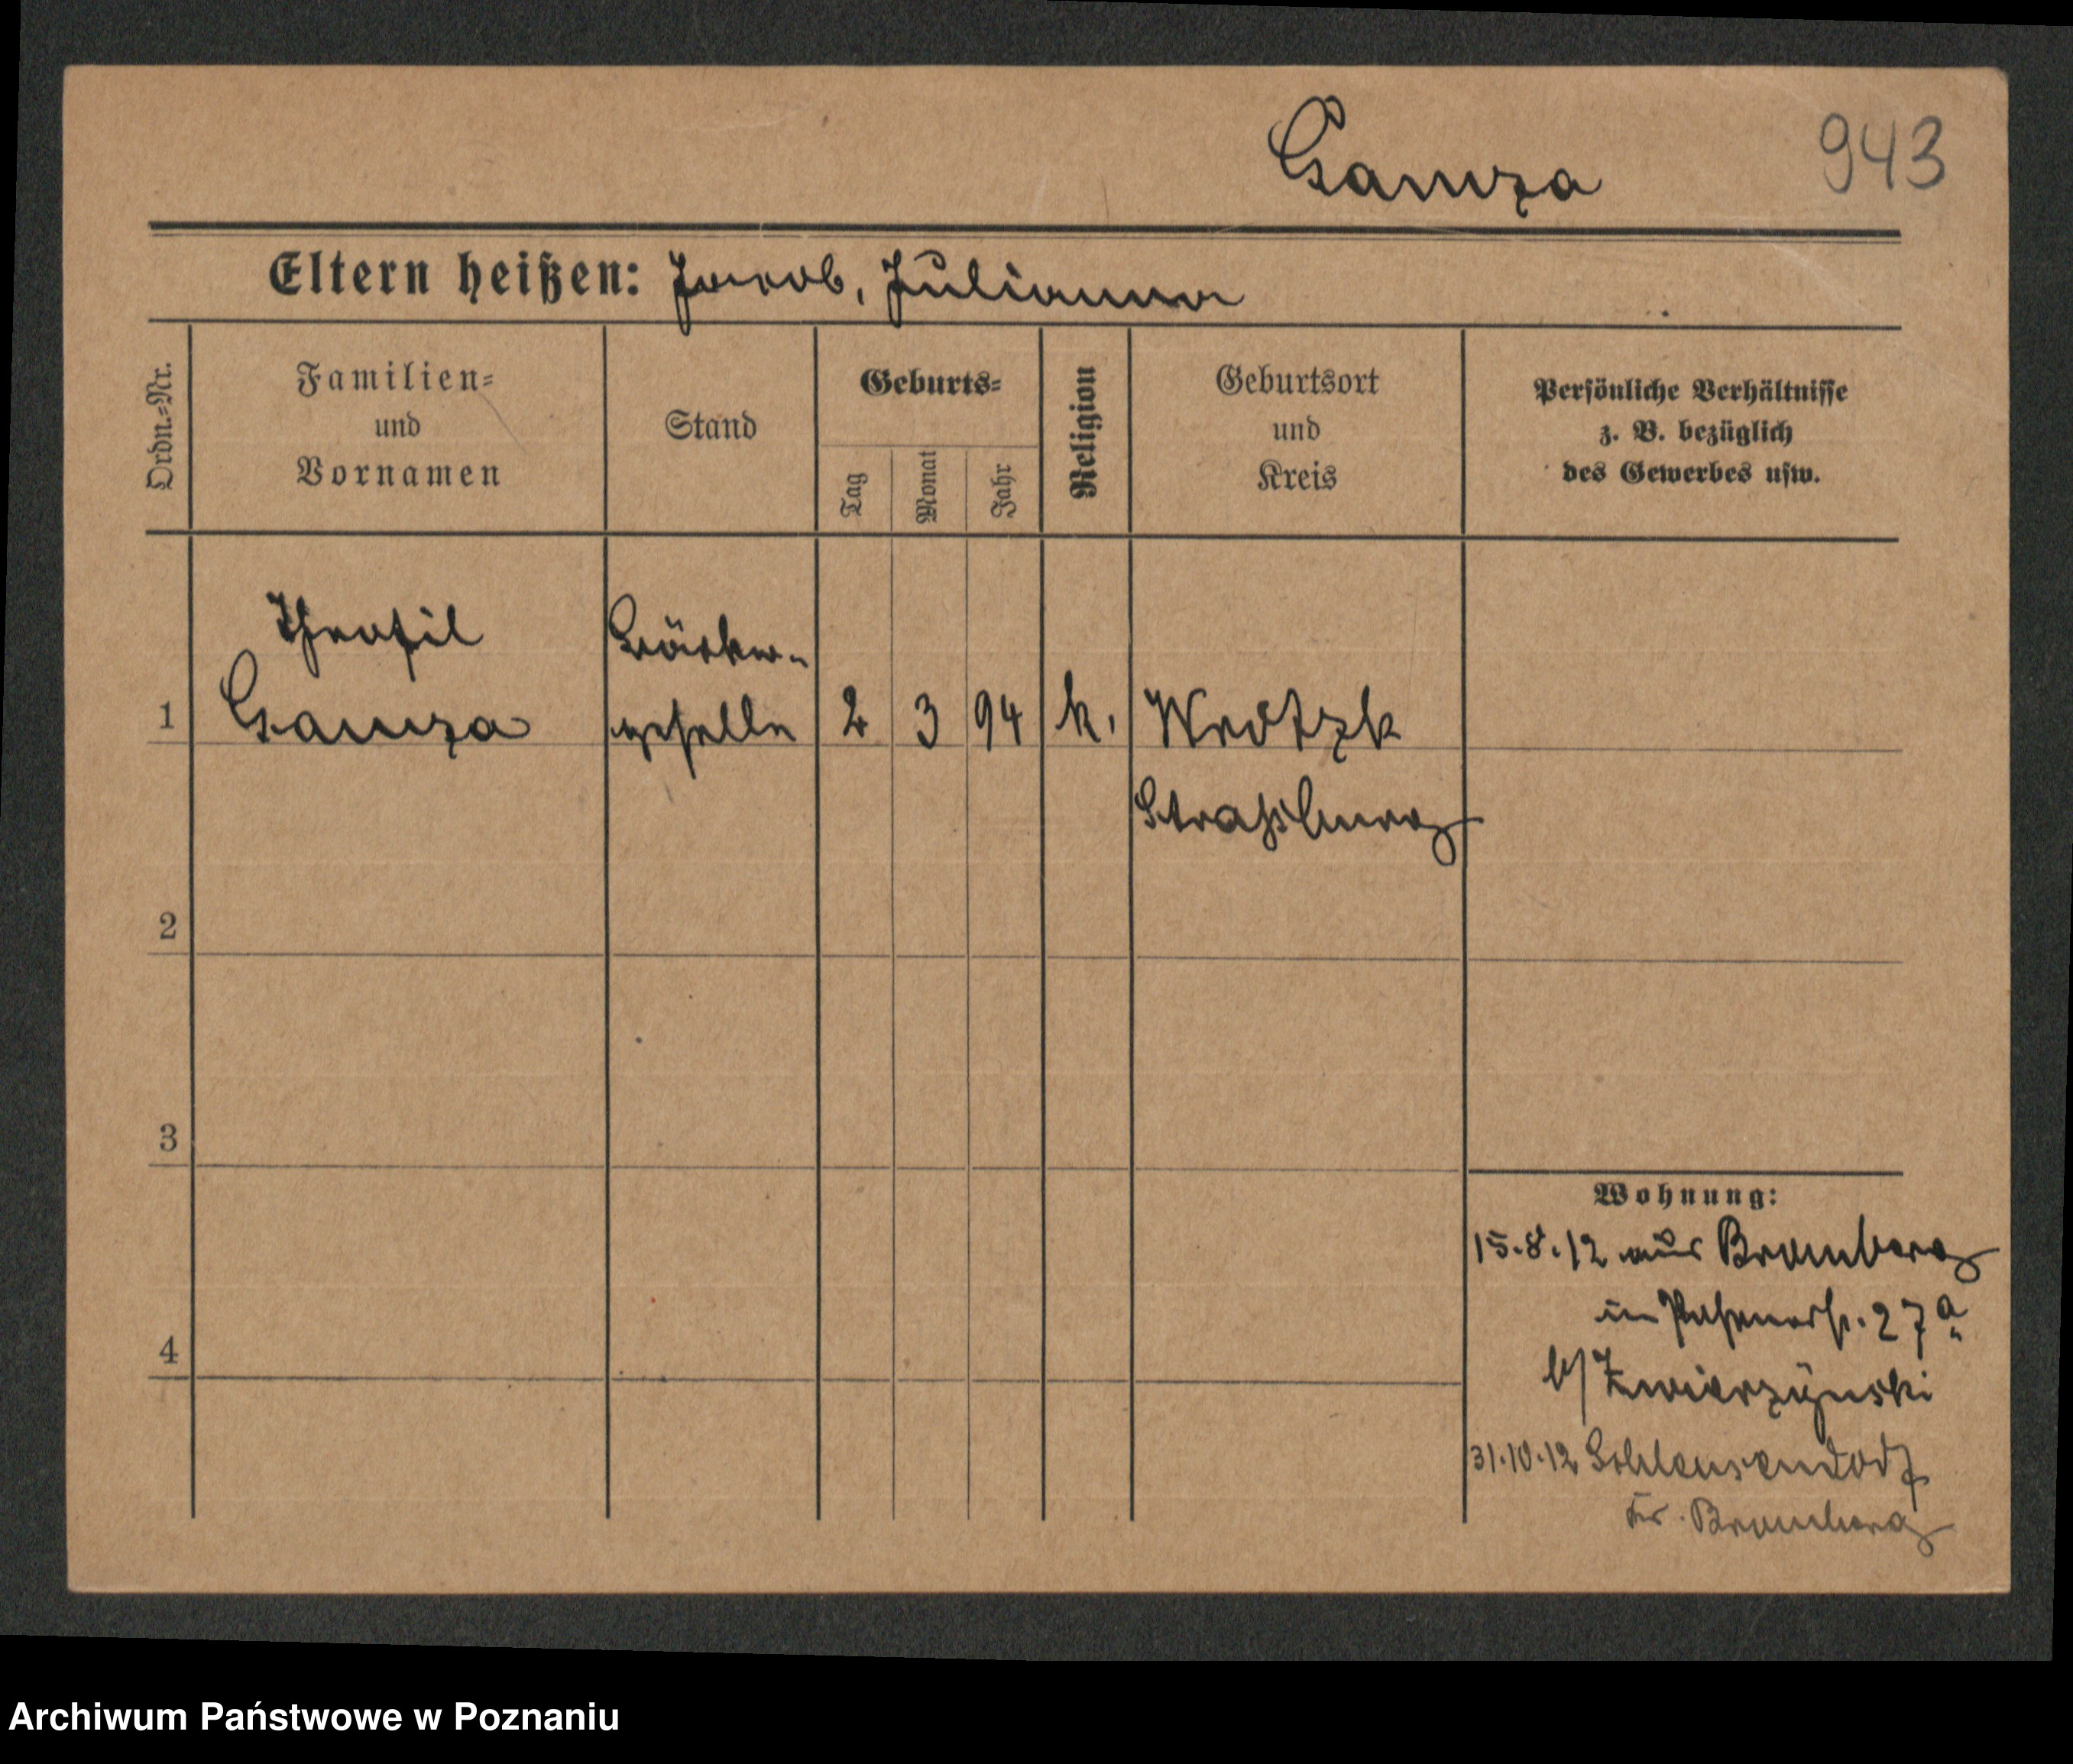 Gamza 943
Eltern heißen: Jacob, Julianna
Ordn.-Nr.
Familien-
und
Vornamen
Stand
Geburts-
Tag
Monat
Jahr
Religion
Geburtsort
und
Kreis
Persönliche Verhältnisse
z. B. bezüglich
des Gewerbes usw.
Theofil
Gamza
Bäcker-
geselle
1
2 3 94 k. Wrotzk
Straßburg
2
3
4
Wohnung:
15.8.12 aus Bromberg
in 27a
b/ Zwierzynski
31.10.12 Schleusendorf
Kr. Bromberg
Archiwum Państwowe w Poznaniu